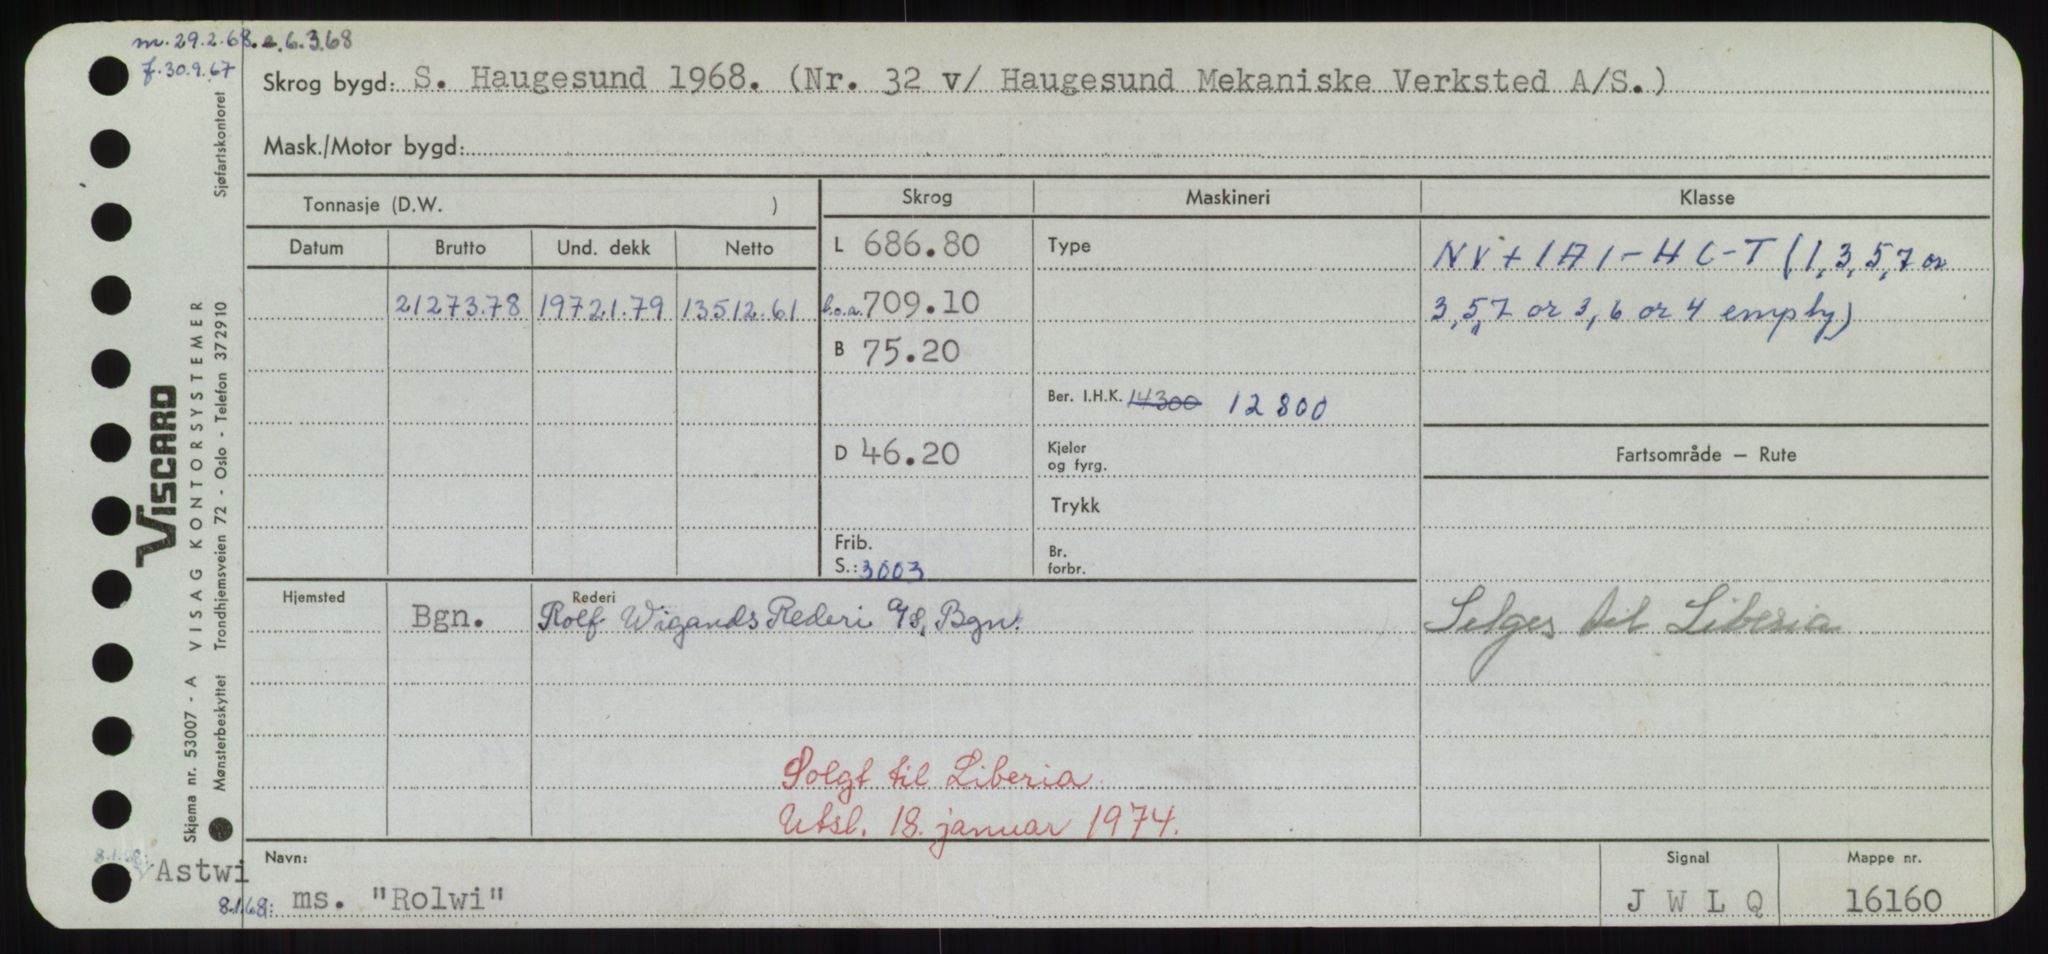 m. 29.2.68. e. 6.3.68
f. 30.9.67
Skrog bygd: S. Haugesund 1968. (Nr. 32 v/ Haugesund Mekaniske Verksted A/S.)
Mask./Motor bygd:
Tonnasje (D.W. )
Skrog
Maskineri
Klasse
Datum
Brutto
Und. dekk
Netto
21273.78
19721.79
13512.61
L 686.80
l.o.a. 709.10
B 75.20
D 46.20
Frib.
S.: 3003
Type
Ber. I.H.K. 14300 12800
Kjeler
og fyrg.
Trykk
Br.
forbr.
NV+1A1-HC-T (1,3,5,7 or
3,5,7 or 3,6 or 4 empty)
Fartsområde – Rute
Selges til Liberia
Hjemsted
Rederi
Bgn.
Rolf Wigands Rederi A/S, Bgn.
Solgt til Liberia.
Utsl. 18. januar 1974.
8.1.68: Astwi
Navn:
8.1.68: ms. "Rolwi"
Signal
J W L Q
Mappe nr.
16160
VISCARD
Skjema nr. 53007 - A VISAG KONTORSYSTEMER
Mønsterbeskyttet Trondhjemsveien 72 - Oslo - Telefon 372910
Sjøfartskontoret